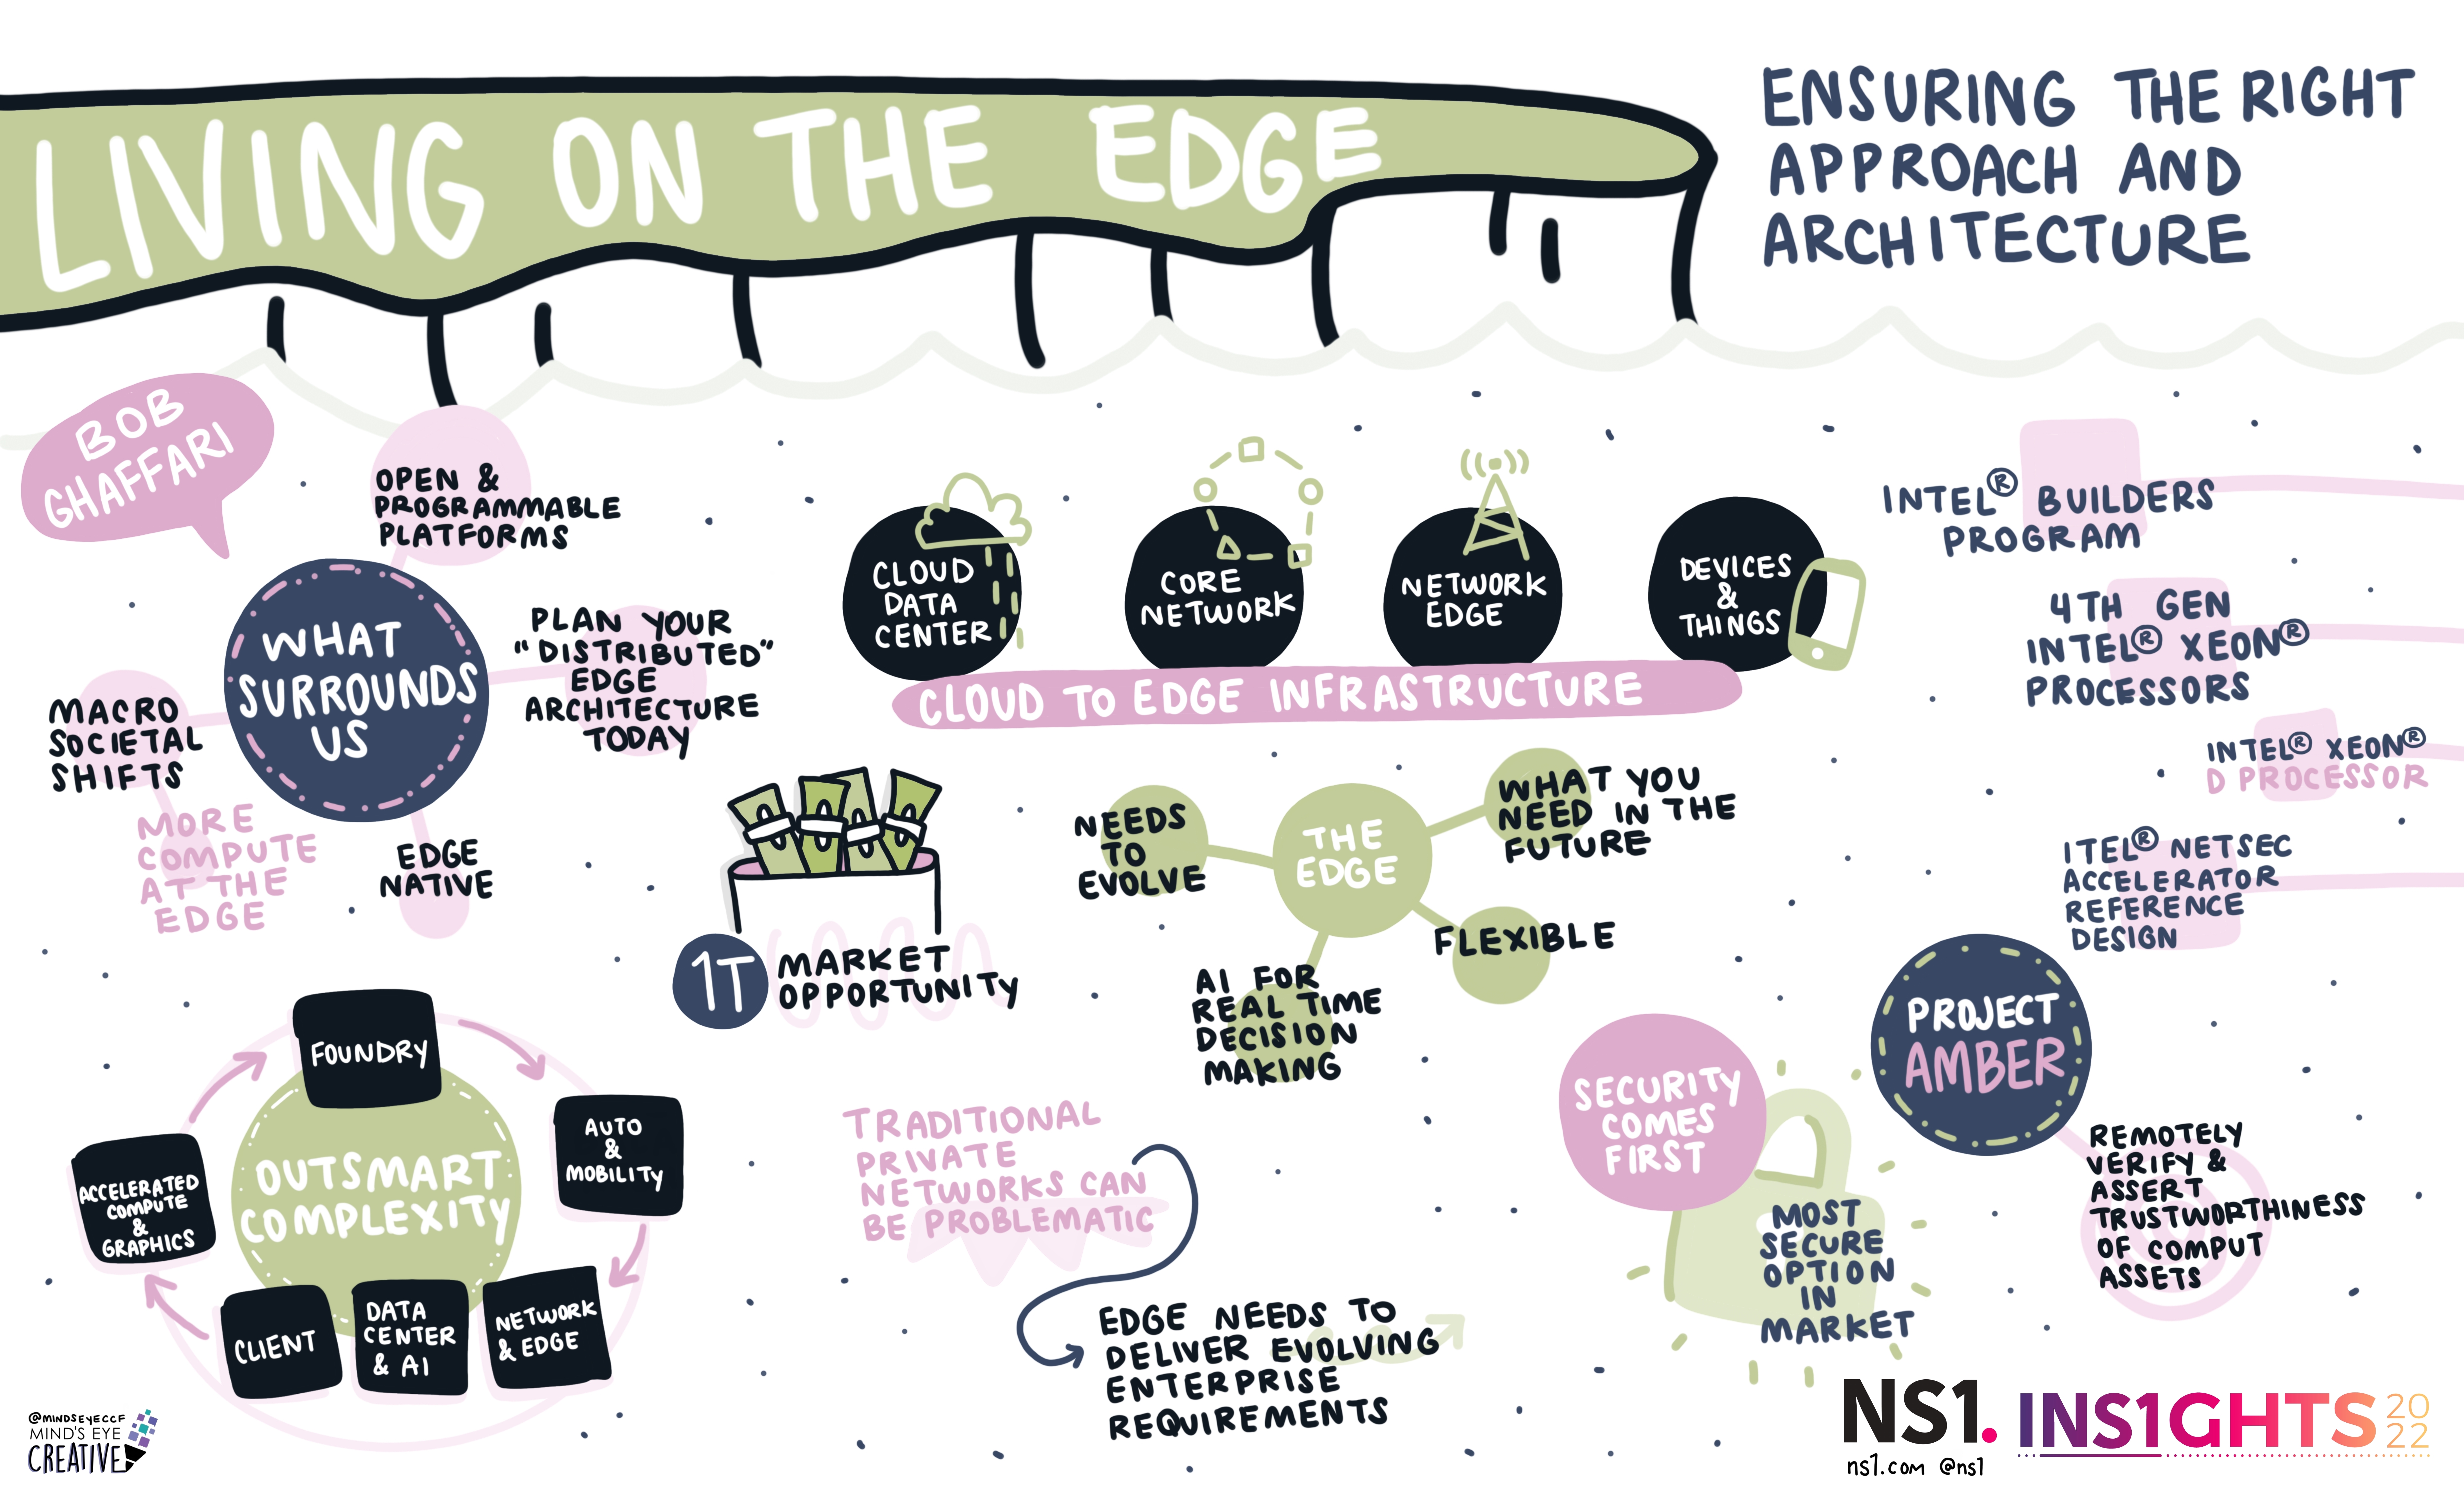 LIVING ON THE EDGE
ENSURING THE RIGHT
APPROACH AND
ARCHITECTURE
BOB
GHAFFARI
OPEN &
PROGRAMMABLE
PLATFORMS
WHAT
SURROUNDS
US
PLAN YOUR
"DISTRIBUTED"
EDGE
ARCHITECTURE
TODAY
MACRO
SOCIETAL
SHIFTS
MORE
COMPUTE
AT THE
EDGE
EDGE
NATIVE
CLOUD
DATA
CENTER
CORE
NETWORK
NETWORK
EDGE
DEVICES
&
THINGS
CLOUD TO EDGE INFRASTRUCTURE
INTEL® BUILDERS
PROGRAM
4TH GEN
INTEL® XEON®
PROCESSORS
INTEL® XEON®
D PROCESSOR
ITEL® NETSEC
ACCELERATOR
REFERENCE
DESIGN
1T
MARKET
OPPORTUNITY
THE
EDGE
NEEDS
TO
EVOLVE
WHAT YOU
NEED IN THE
FUTURE
FLEXIBLE
AI FOR
REAL TIME
DECISION
MAKING
OUTSMART
COMPLEXITY
FOUNDRY
AUTO
&
MOBILITY
NETWORK
& EDGE
DATA
CENTER
& AI
CLIENT
ACCELERATED
COMPUTE
&
GRAPHICS
TRADITIONAL
PRIVATE
NETWORKS CAN
BE PROBLEMATIC
EDGE NEEDS TO
DELIVER EVOLVING
ENTERPRISE
REQUIREMENTS
SECURITY
COMES
FIRST
MOST
SECURE
OPTION
IN
MARKET
PROJECT
AMBER
REMOTELY
VERIFY &
ASSERT
TRUSTWORTHINESS
OF COMPUT
ASSETS
@MINDSEYECCF
MIND'S EYE
CREATIVE
NS1.
ns1.com @ns1
INS1GHTS 2022